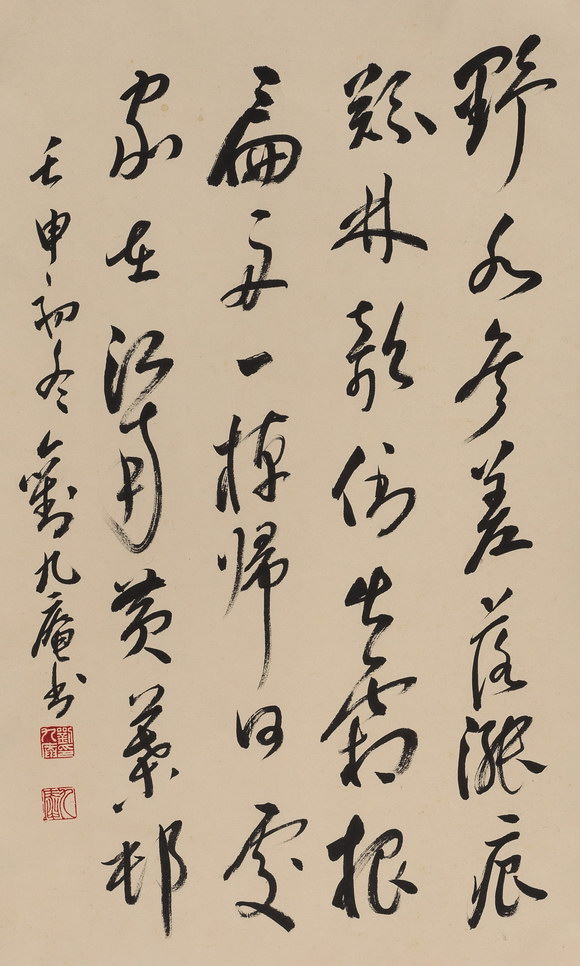 野水參差落漲痕
疎林欹倒出霜根
扁舟一棹歸何處
家在江南黃葉邨
壬申初冬劉九庵書